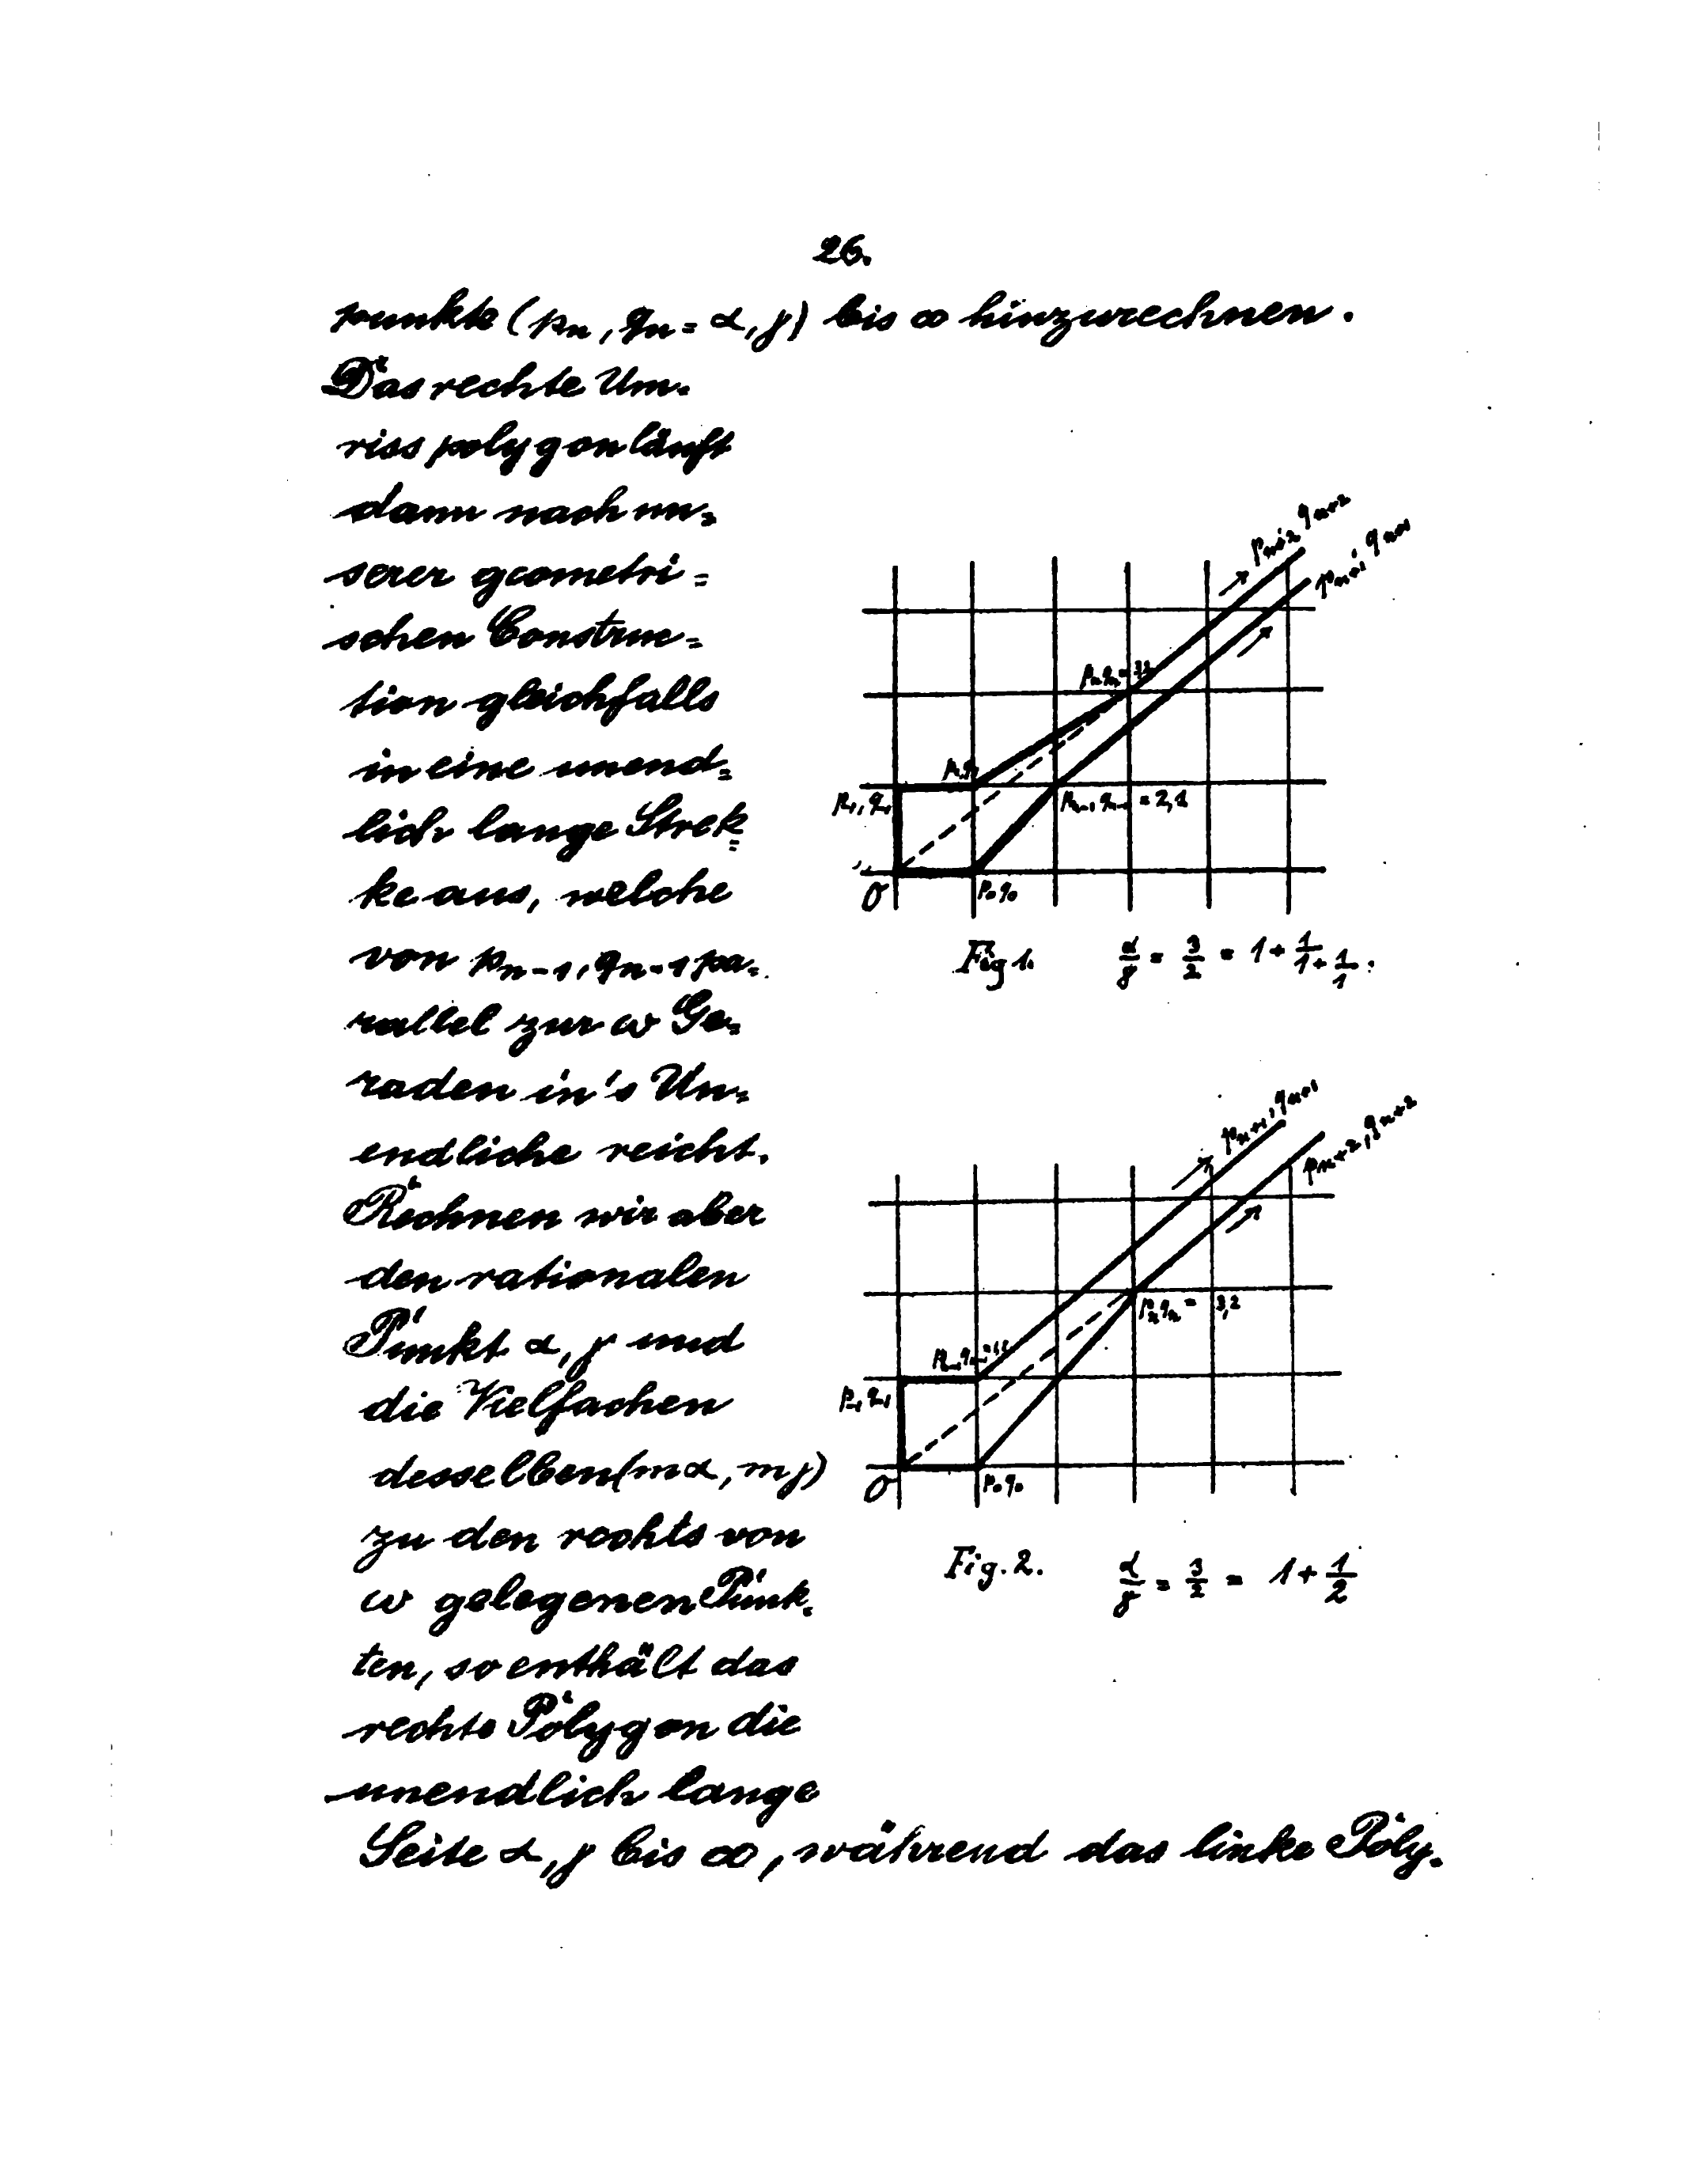 26.
punkte (pn, qn = α, γ) bis ∞ hinzurechnen.
Das rechte Um-
risspolygon läuft
dann nach un=
serer geometri=
schen Construc=
tion gleichfalls
in eine unend=
lich lange Strek=
ke aus, welche
von pn-1, qn-1 pa-
rallel zur ω Ge=
raden in's Un=
endliche reicht.
Rechnen wir aber
den rationalen
Punkt α, γ und
die Vielfachen
desselben (mα, mγ)
zu den rechts von
ω gelegenen Punk-
ten, so enthält das
rechte Polygon die
unendlich lange
Seite α, γ bis ∞, während das linke Poly-
pn+2 qn+2
pn+1, qn+1
pn qn = 3,2
p1 q1
p-1, q-1
pn-1, qn-1 = 2,1
O
p0 q0
Fig 1. α/γ = 3/2 = 1 + 1/1 + 1/1.
pn+1, qn+1
pn+2, qn+2
pn qn = 3,2
pn-1 qn-1 = 1,1
p-1 q-1
O
p0 q0
Fig. 2. α/γ = 3/2 = 1 + 1/2